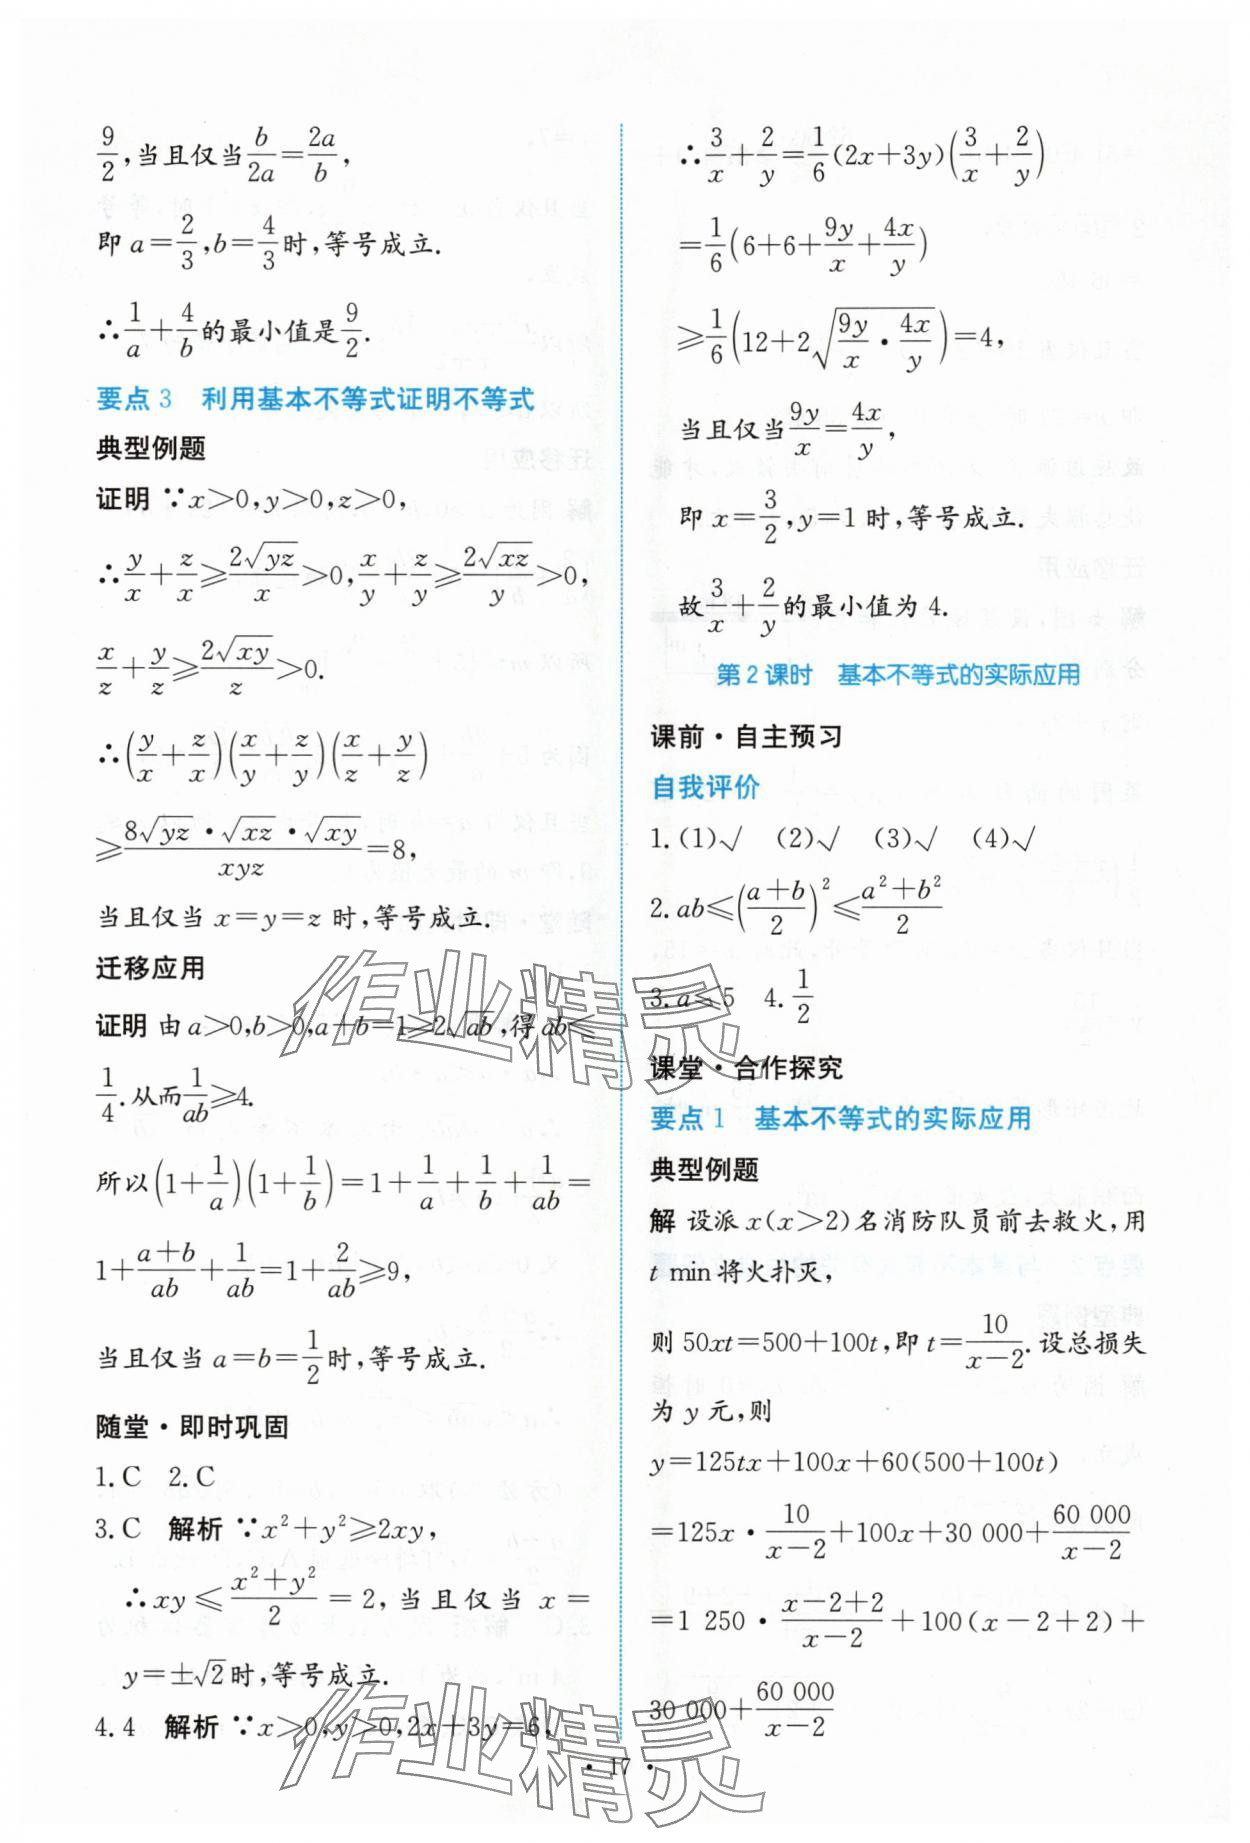 9/2,当且仅当b/2a=2a/b,
即a=2/3,b=4/3时,等号成立.
∴1/a+4/b的最小值是9/2.
要点3 利用基本不等式证明不等式
典型例题
证明 ∵x>0,y>0,z>0,
∴y/x+z/x≥2√yz/x>0,x/y+z/y≥2√xz/y>0,
x/z+y/z≥2√xy/z>0.
∴(y/x+z/x)(x/y+z/y)(x/z+y/z)
≥8√yz·√xz·√xy/xyz=8,
当且仅当x=y=z时,等号成立.
迁移应用
证明 由a>0,b>0,a+b=1≥2√ab,得ab≤
1/4.从而1/ab≥4.
所以(1+1/a)(1+1/b)=1+1/a+1/b+1/ab=
1+(a+b)/ab+1/ab=1+2/ab≥9,
当且仅当a=b=1/2时,等号成立.
随堂·即时巩固
1.C 2.C
3.C 解析 ∵x²+y²≥2xy,
∴xy≤(x²+y²)/2=2,当且仅当x=
y=±√2时,等号成立.
4.4 解析 ∵x>0,y>0,2x+3y=6,
∴3/x+2/y=1/6(2x+3y)(3/x+2/y)
=1/6(6+6+9y/x+4x/y)
≥1/6(12+2√(9y/x·4x/y))=4,
当且仅当9y/x=4x/y,
即x=3/2,y=1时,等号成立.
故3/x+2/y的最小值为4.
第2课时 基本不等式的实际应用
课前·自主预习
自我评价
1.(1)√ (2)√ (3)√ (4)√
2.ab≤((a+b)/2)²≤(a²+b²)/2
3.a≤5 4.1/2
课堂·合作探究
要点1 基本不等式的实际应用
典型例题
解 设派x(x>2)名消防队员前去救火,用
t min将火扑灭,
则50xt=500+100t,即t=10/(x-2).设总损失
为y元,则
y=125tx+100x+60(500+100t)
=125x·10/(x-2)+100x+30 000+60 000/(x-2)
=1 250·(x-2+2)/(x-2)+100(x-2+2)+
30 000+60 000/(x-2)
·17·
作业精灵
作业精灵